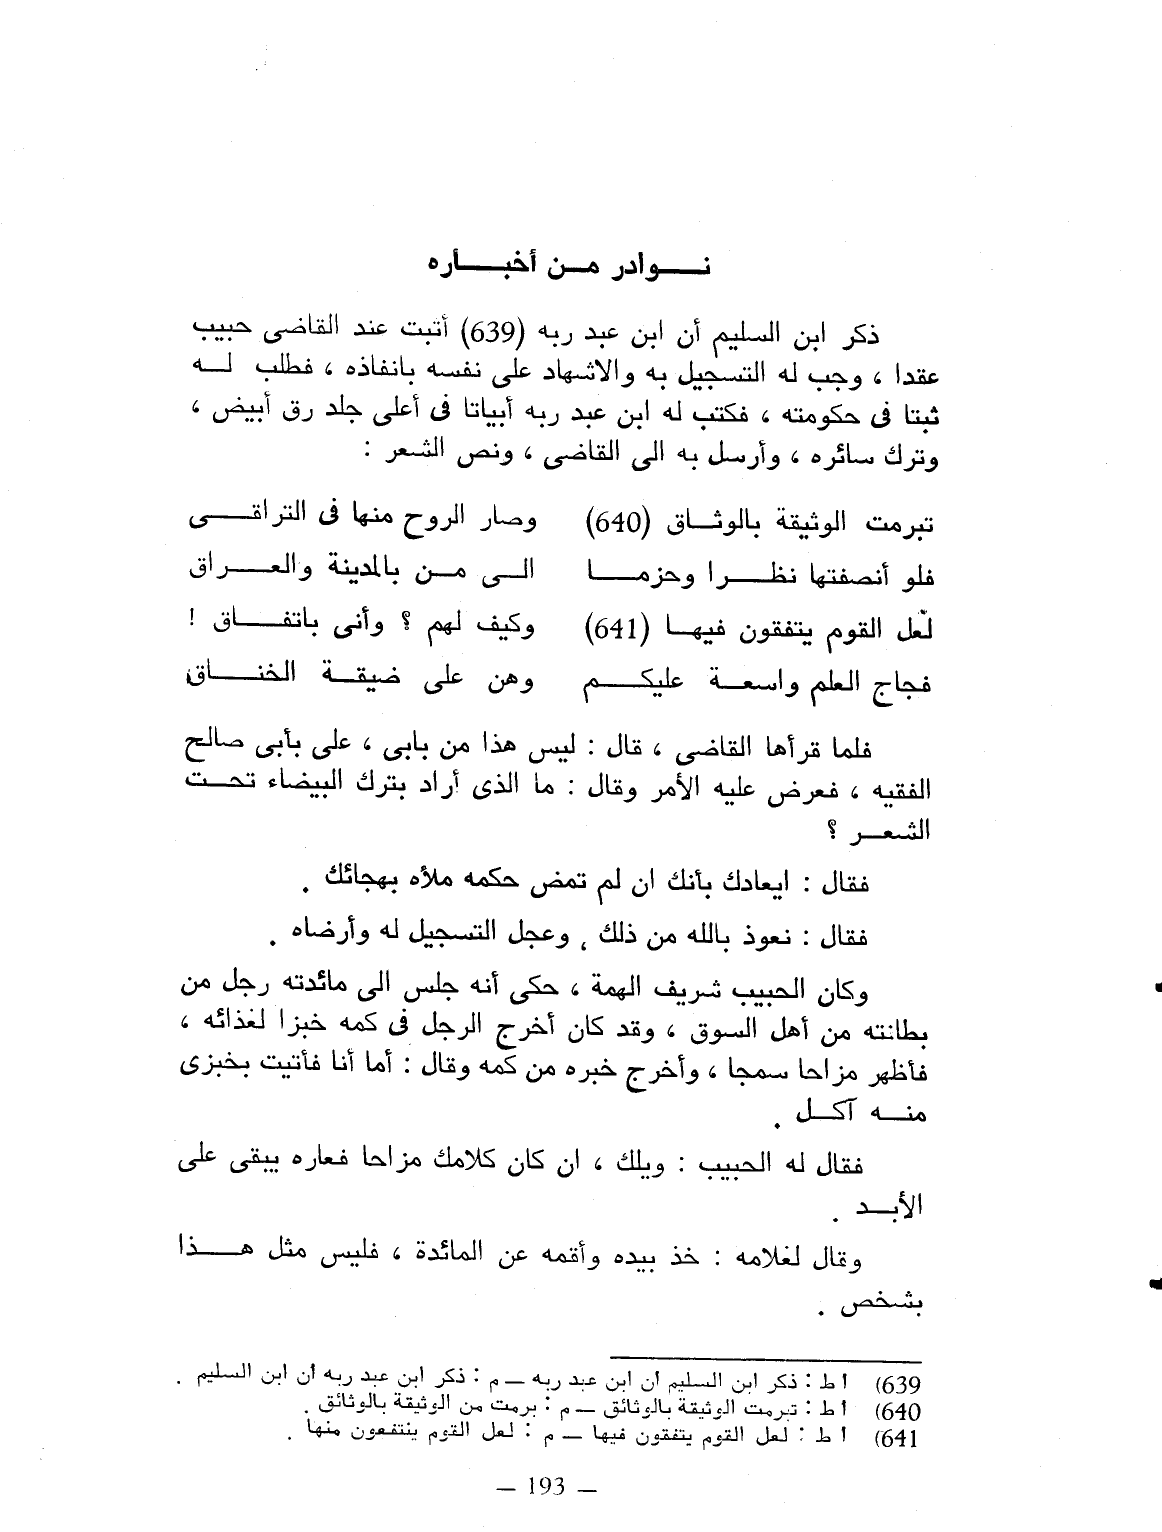 نـــوادر مـن أخبـــاره
ذكر ابن السليم أن ابن عبد ربه (639) أثبت عند القاضى حبيب
عقدا ، وجب له التسجيل به والاشهاد على نفسه بانفاذه ، فطلب لــه
ثبتا فى حكومته ، فكتب له ابن عبد ربه أبياتا فى أعلى جلد رق أبيض ،
وترك سائره ، وأرسل به الى القاضى ، ونص الشعر :
تبرمت الوثيقة بالوثـاق (640) وصار الروح منها فى التراقــى
فلو أنصفتها نظــرا وحزمــا الـى مـن بالمدينة والعــراق
لعل القوم يتفقون فيهـا (641) وكيف لهم ؟ وأنى باتفــاق !
فجاج العلم واسعـة عليكــم وهن على ضيقـة الخنــاق
فلما قرأها القاضى ، قال : ليس هذا من بابى ، على بأبى صالح
الفقيه ، فعرض عليه الأمر وقال : ما الذى أراد بترك البيضاء تحـت
الشعـر ؟
فقال : ايعادك بأنك ان لم تمض حكمه ملأه بهجائك .
فقال : نعوذ بالله من ذلك ، وعجل التسجيل له وأرضاه .
وكان الحبيب شريف الهمة ، حكى أنه جلس الى مائدته رجل من
بطانته من أهل السوق ، وقد كان أخرج الرجل فى كمه خبزا لغذائه ،
فأظهر مزاحا سمجا ، وأخرج خبره من كمه وقال : أما أنا فأتيت بخبزى
منـه آكـل .
فقال له الحبيب : ويلك ، ان كان كلامك مزاحا فعاره يبقى على
الأبـد .
وقال لغلامه : خذ بيده وأقمه عن المائدة ، فليس مثل هــذا
بشخص .
639) أ ط : ذكر ابن السليم أن ابن عبد ربه ــ م : ذكر ابن عبد ربه أن ابن السليم .
640) أ ط : تبرمت الوثيقة بالوثائق ــ م : برمت من الوثيقة بالوثائق .
641) أ ط : لعل القوم يتفقون فيها ــ م : لعل القوم ينتفعون منها .
— 193 —